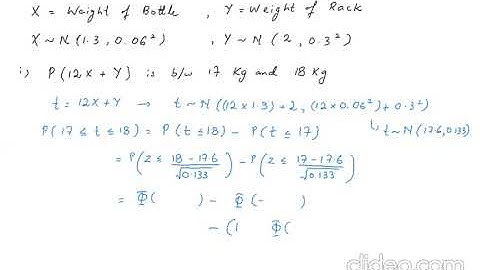 X = Weight of Bottle , Y = Weight of Rack
X ~ N (1.3, 0.06²) , Y ~ N (2, 0.3²)
i) P(12X + Y) is b/w 17 Kg and 18 Kg
t = 12X + Y → t ~ N ((12×1.3) + 2, (12×0.06²) + 0.3²)
P(17 ≤ t ≤ 18) = P(t ≤ 18) - P(t ≤ 17) t ~ N(17.6, 0.133)
= P(Z ≤ (18 - 17.6)/√0.133) - P(Z ≤ (17 - 17.6)/√0.133)
= Φ( ) - Φ(- )
- (1 Φ(
clideo.com